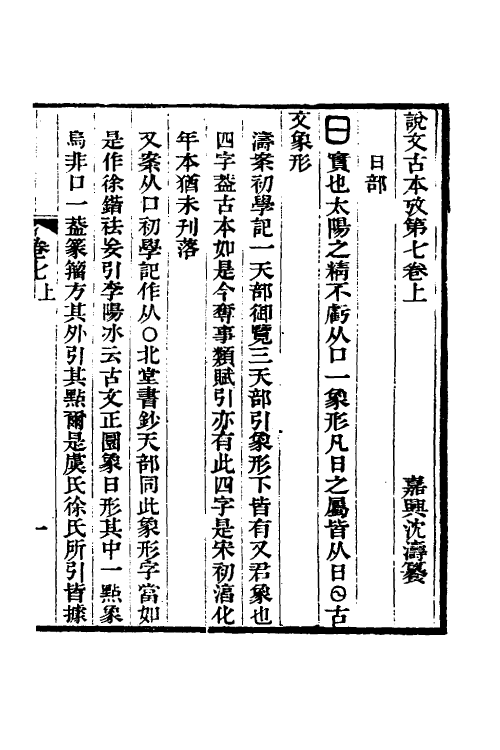 說文古本攷第七卷上
嘉興沈濤纂
日部
日實也太陽之精不虧从口一象形凡日之屬皆从日古
文象形
濤案初學記一天部御覽三天部引象形下皆有又君象也
四字葢古本如是今奪事類賦引亦有此四字是宋初淊化
年本猶未刊落
又案从口初學記作从○北堂書鈔天部同此象形字當如
是作徐鍇袪妄引李陽冰云古文正圜象日形其中一點象
烏非口一葢篆籀方其外引其點爾是虞氏徐氏所引皆據
卷七上
一